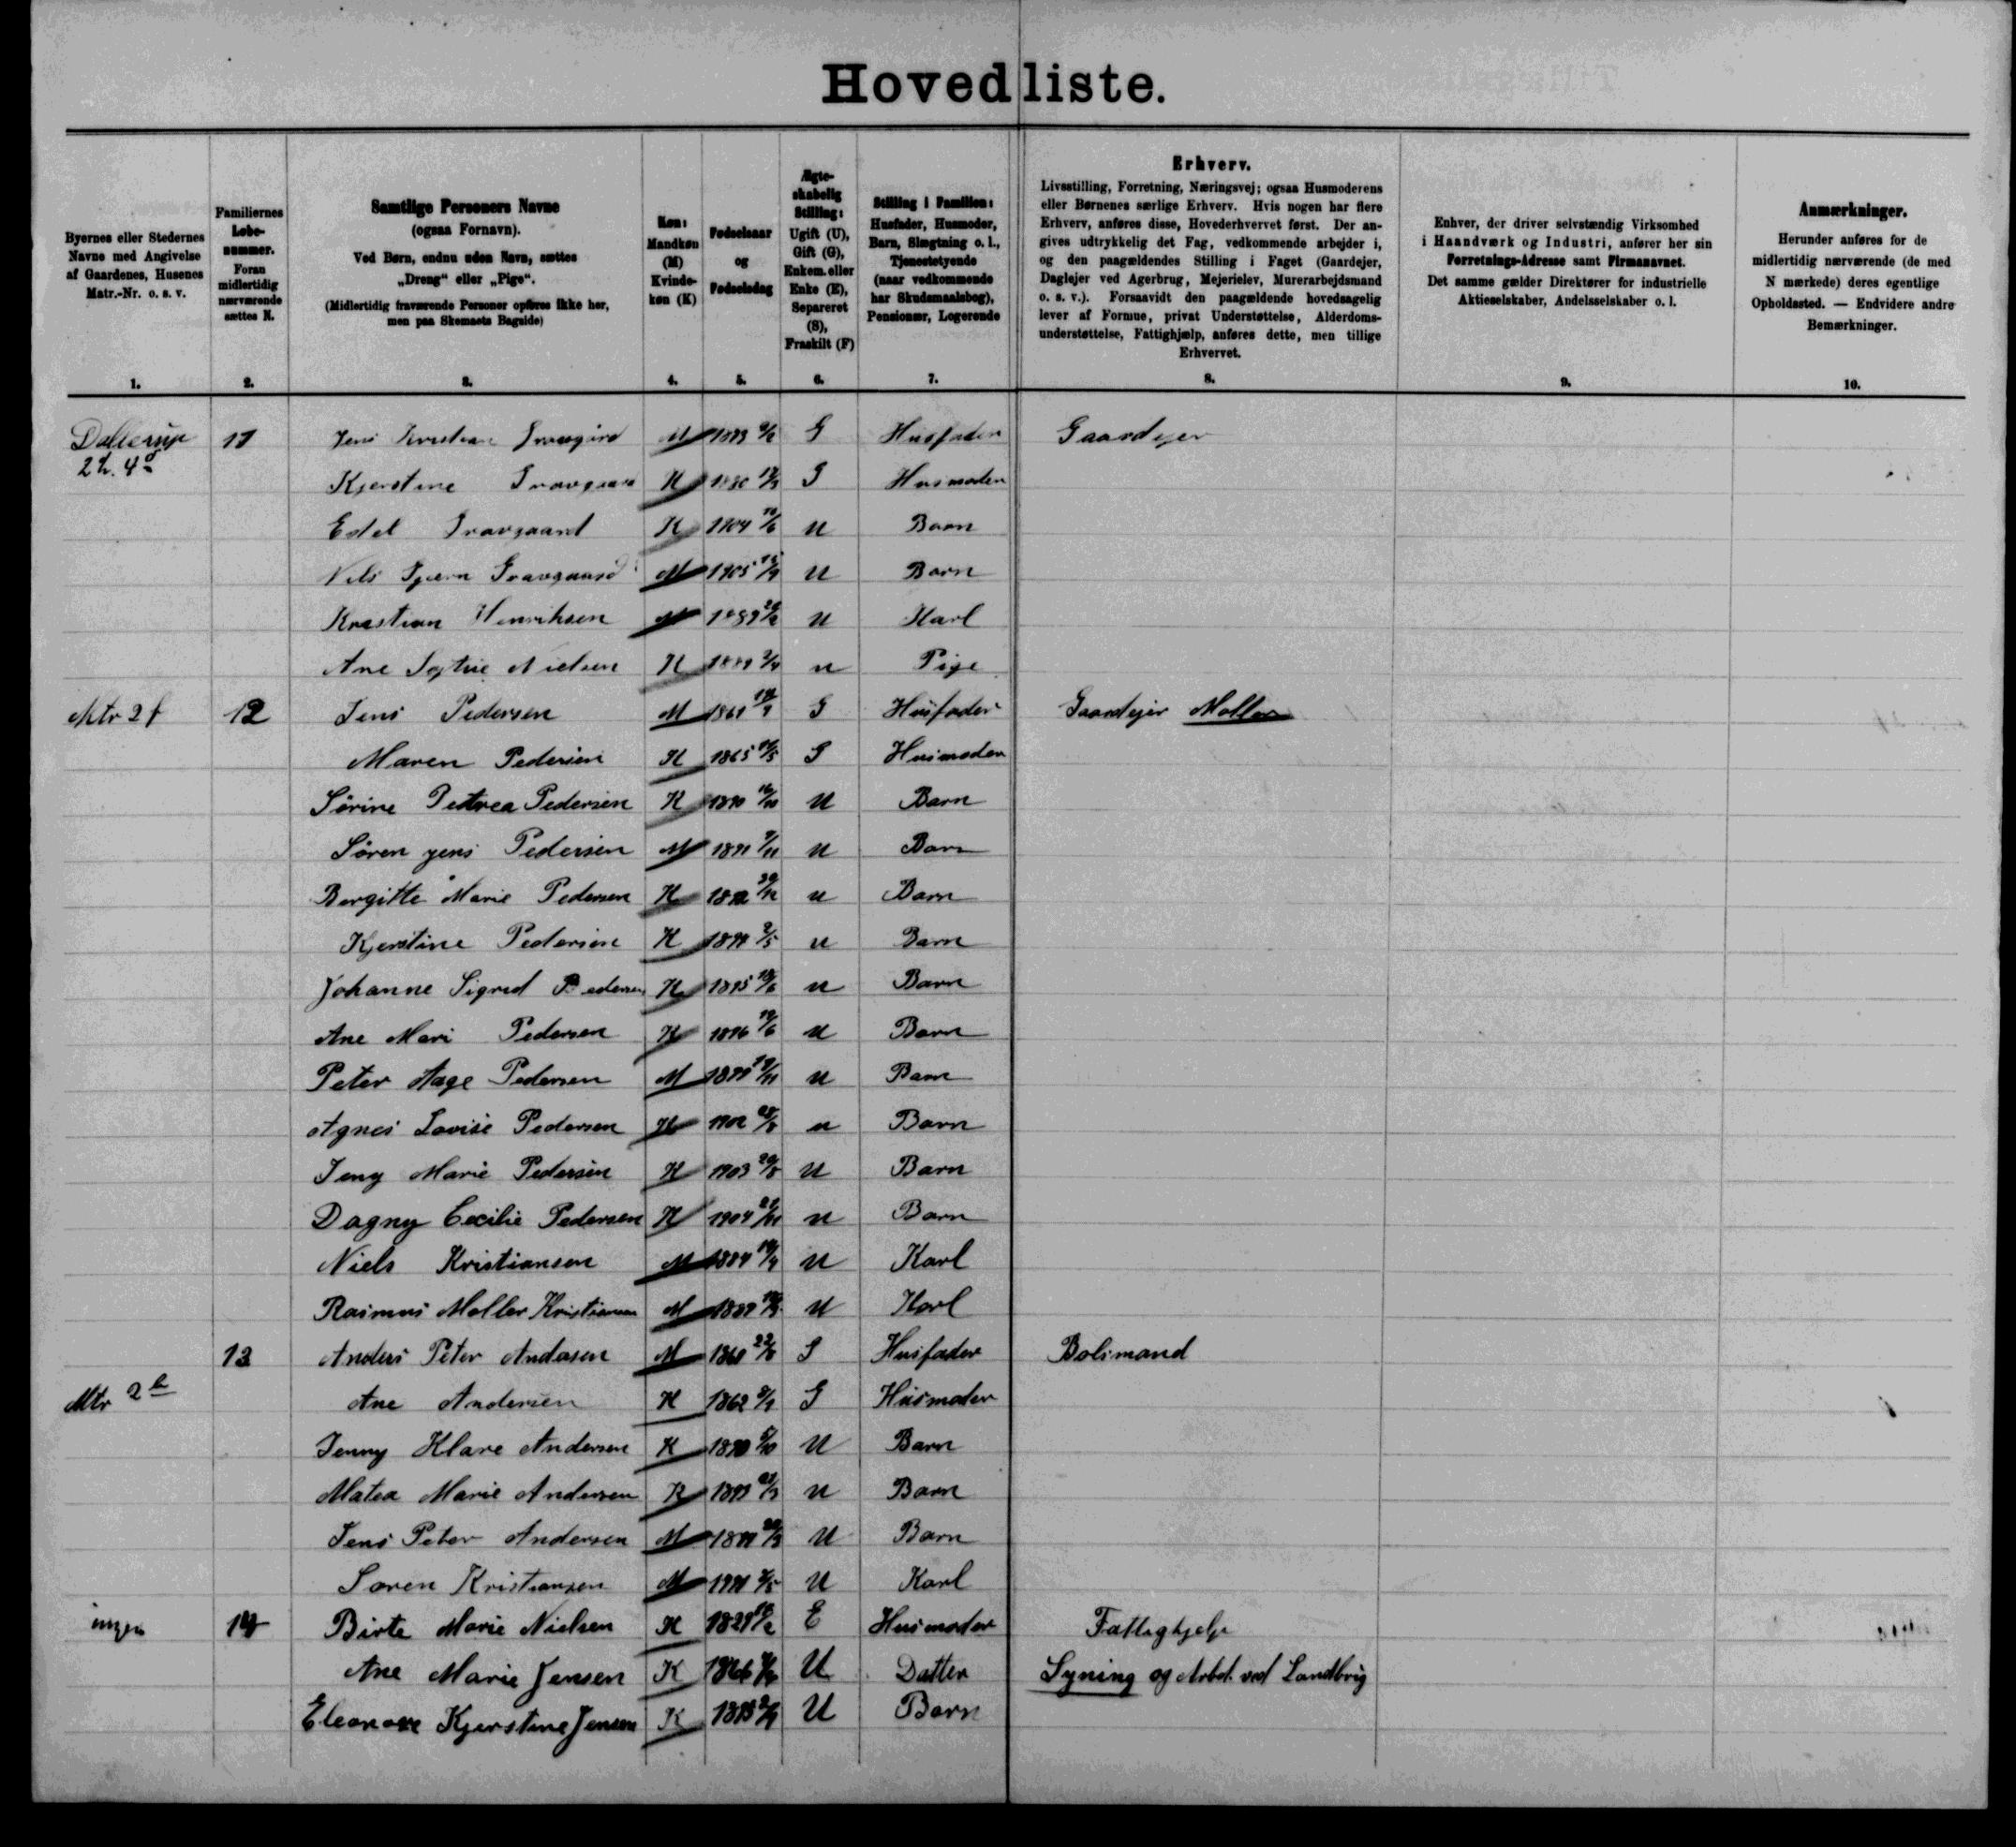 Hovedliste.
Byernes eller Stedernes Navne med Angivelse af Gaardenes, Husenes Matr.-Nr. o. s. v.
Familiernes Løbenummer. Foran midlertidig nærværende sættes N.
Samtlige Personers Navne (ogsaa Fornavn). Ved Børn, endnu uden Navn, sættes „Dreng“ eller „Pige“. (Midlertidig fraværende Personer opføres ikke her, men paa Skemaets Bagside)
Køn: Mandkøn (M) Kvindekøn (K)
Fødselsaar og Fødselsdag
Ægteskabelig Stilling: Ugift (U), Gift (G), Enkem. eller Enke (E), Separeret (S), Fraskilt (F)
Stilling i Familien: Husfader, Husmoder, Barn, Slægtning o. l., Tjenestetyende (naar vedkommende har Skudsmaalsbog), Pensionær, Logerende
Erhverv. Livsstilling, Forretning, Næringsvej; ogsaa Husmoderens eller Børnenes særlige Erhverv. Hvis nogen har flere Erhverv, anføres disse, Hovederhvervet først. Der angives udtrykkelig det Fag, vedkommende arbejder i, og den paagældendes Stilling i Faget (Gaardejer, Daglejer ved Agerbrug, Mejerielev, Murerarbejdsmand o. s. v.). Forsaavidt den paagældende hovedsagelig lever af Formue, privat Understøttelse, Alderdomsunderstøttelse, Fattighjælp, anføres dette, men tillige Erhvervet.
Enhver, der driver selvstændig Virksomhed i Haandværk og Industri, anfører her sin Forretnings-Adresse samt Firmanavnet. Det samme gælder Direktører for industrielle Aktieselskaber, Andelsselskaber o. l.
Anmærkninger. Herunder anføres for de midlertidig nærværende (de med N mærkede) deres egentlige Opholdssted. — Endvidere andre Bemærkninger.
1. 2. 3. 4. 5. 6. 7. 8. 9. 10.
Dallerup 11 Jens Kristian Gravgård M G Husfader Gaardejer
Kjerstine Gravgaard K G Husmoder
Estel Gravgaard K 1904 U Barn
Nils Gravgaard M 1905 U Barn
Kristian Henriksen M 1889 U Karl
Ane Nielsen K 1889 U Pige
Mtr 2f 12 Jens Pedersen M G Husfader Gaardejer Møller
Maren Pedersen K 1865 G Husmoder
Sørine Petrea Pedersen K 1890 16/10 U Barn
Søren Jens Pedersen M 1891 U Barn
Birgitte Marie Pedersen K U Barn
Kjerstine Pedersen K U Barn
Johanne Sigrid Pedersen K 1895 U Barn
Ane Mari Pedersen K 1896 U Barn
Peter Aage Pedersen M U Barn
Agnes Lovise Pedersen K 1902 U Barn
Jeny Marie Pedersen K 1903 U Barn
Dagny Cecilie Pedersen K 1904 U Barn
Niels Kristiansen M 1884 U Karl
Rasmus Møller Kristiansen M 1889 U Karl
13 Anders Peter Andersen M G Husfader Bolsmand
Mtr Ane Andersen K 1862 G Husmoder
Jenny Klare Andersen K 1890 U Barn
Matea Marie Andersen K 1893 U Barn
Jens Peter Andersen M U Barn
Søren Kristiansen M U Karl
ingen 14 Birte Marie Nielsen K E Husmoder Fattighjelp
Ane Marie Jensen K 1866 U Datter Syning og Arbd. ved Landbrug
Eleonore Kjerstine Jensen K U Barn